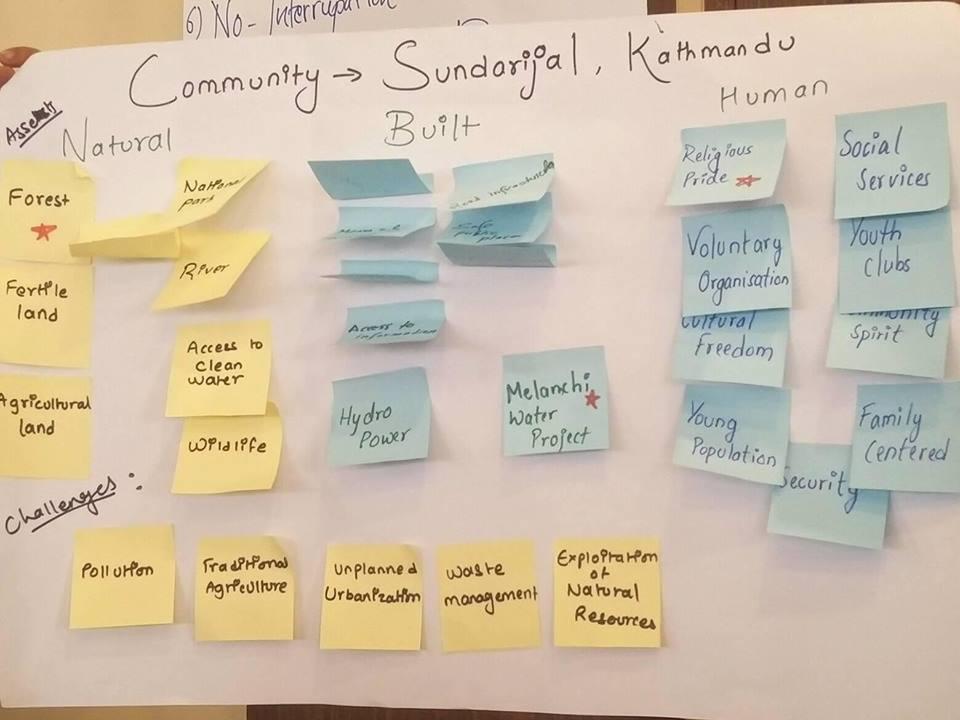 6) No - Interruption
Community → Sundarijal, Kathmandu
Assets
Natural
Built
Human
Forest
National
park
River
Fertile
land
Access to
clean
water
Agricultural
land
Wildlife
Safe
public
place
Access to
information
Hydro
Power
Melanchi
Water
Project
Religious
Pride
Social
Services
Voluntary
Organisation
Youth
Clubs
Cultural
Freedom
Spirit
Young
Population
Family
Centered
Security
Challenges :
Pollution
Traditional
Agriculture
Unplanned
Urbanization
Waste
management
Exploitation
of
Natural
Resources